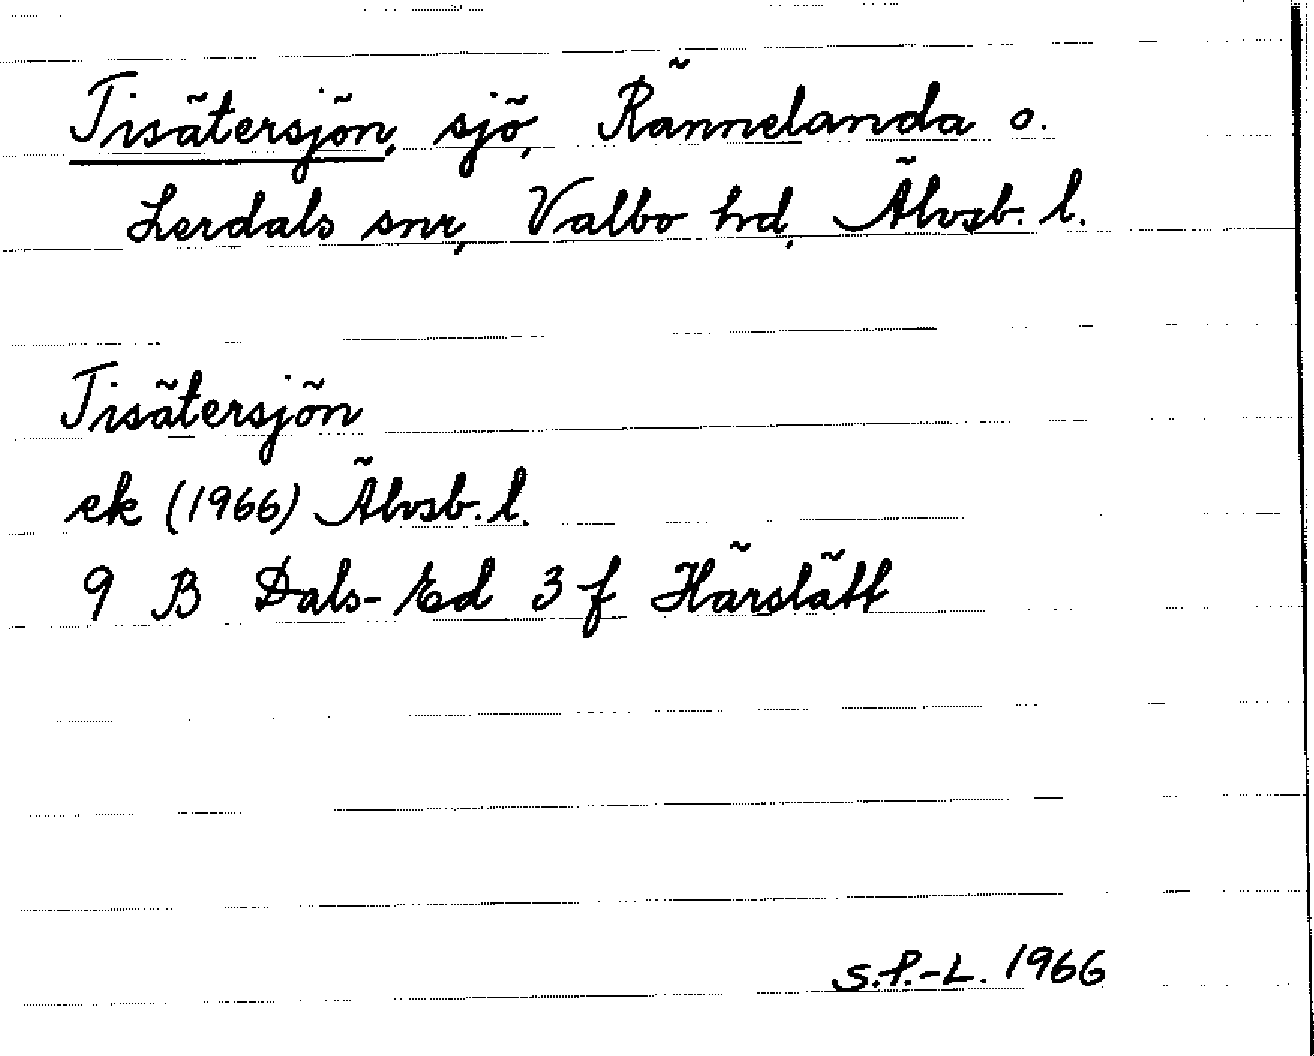 Tisätersjön, sjö, Rännelanda o.
Lerdals snr, Valbo hd, Älvsb. l.
Tisätersjön
ek (1966) Älvsb. l.
9 B Dals-Ed 3 f Härslätt
S.P.-L. 1966